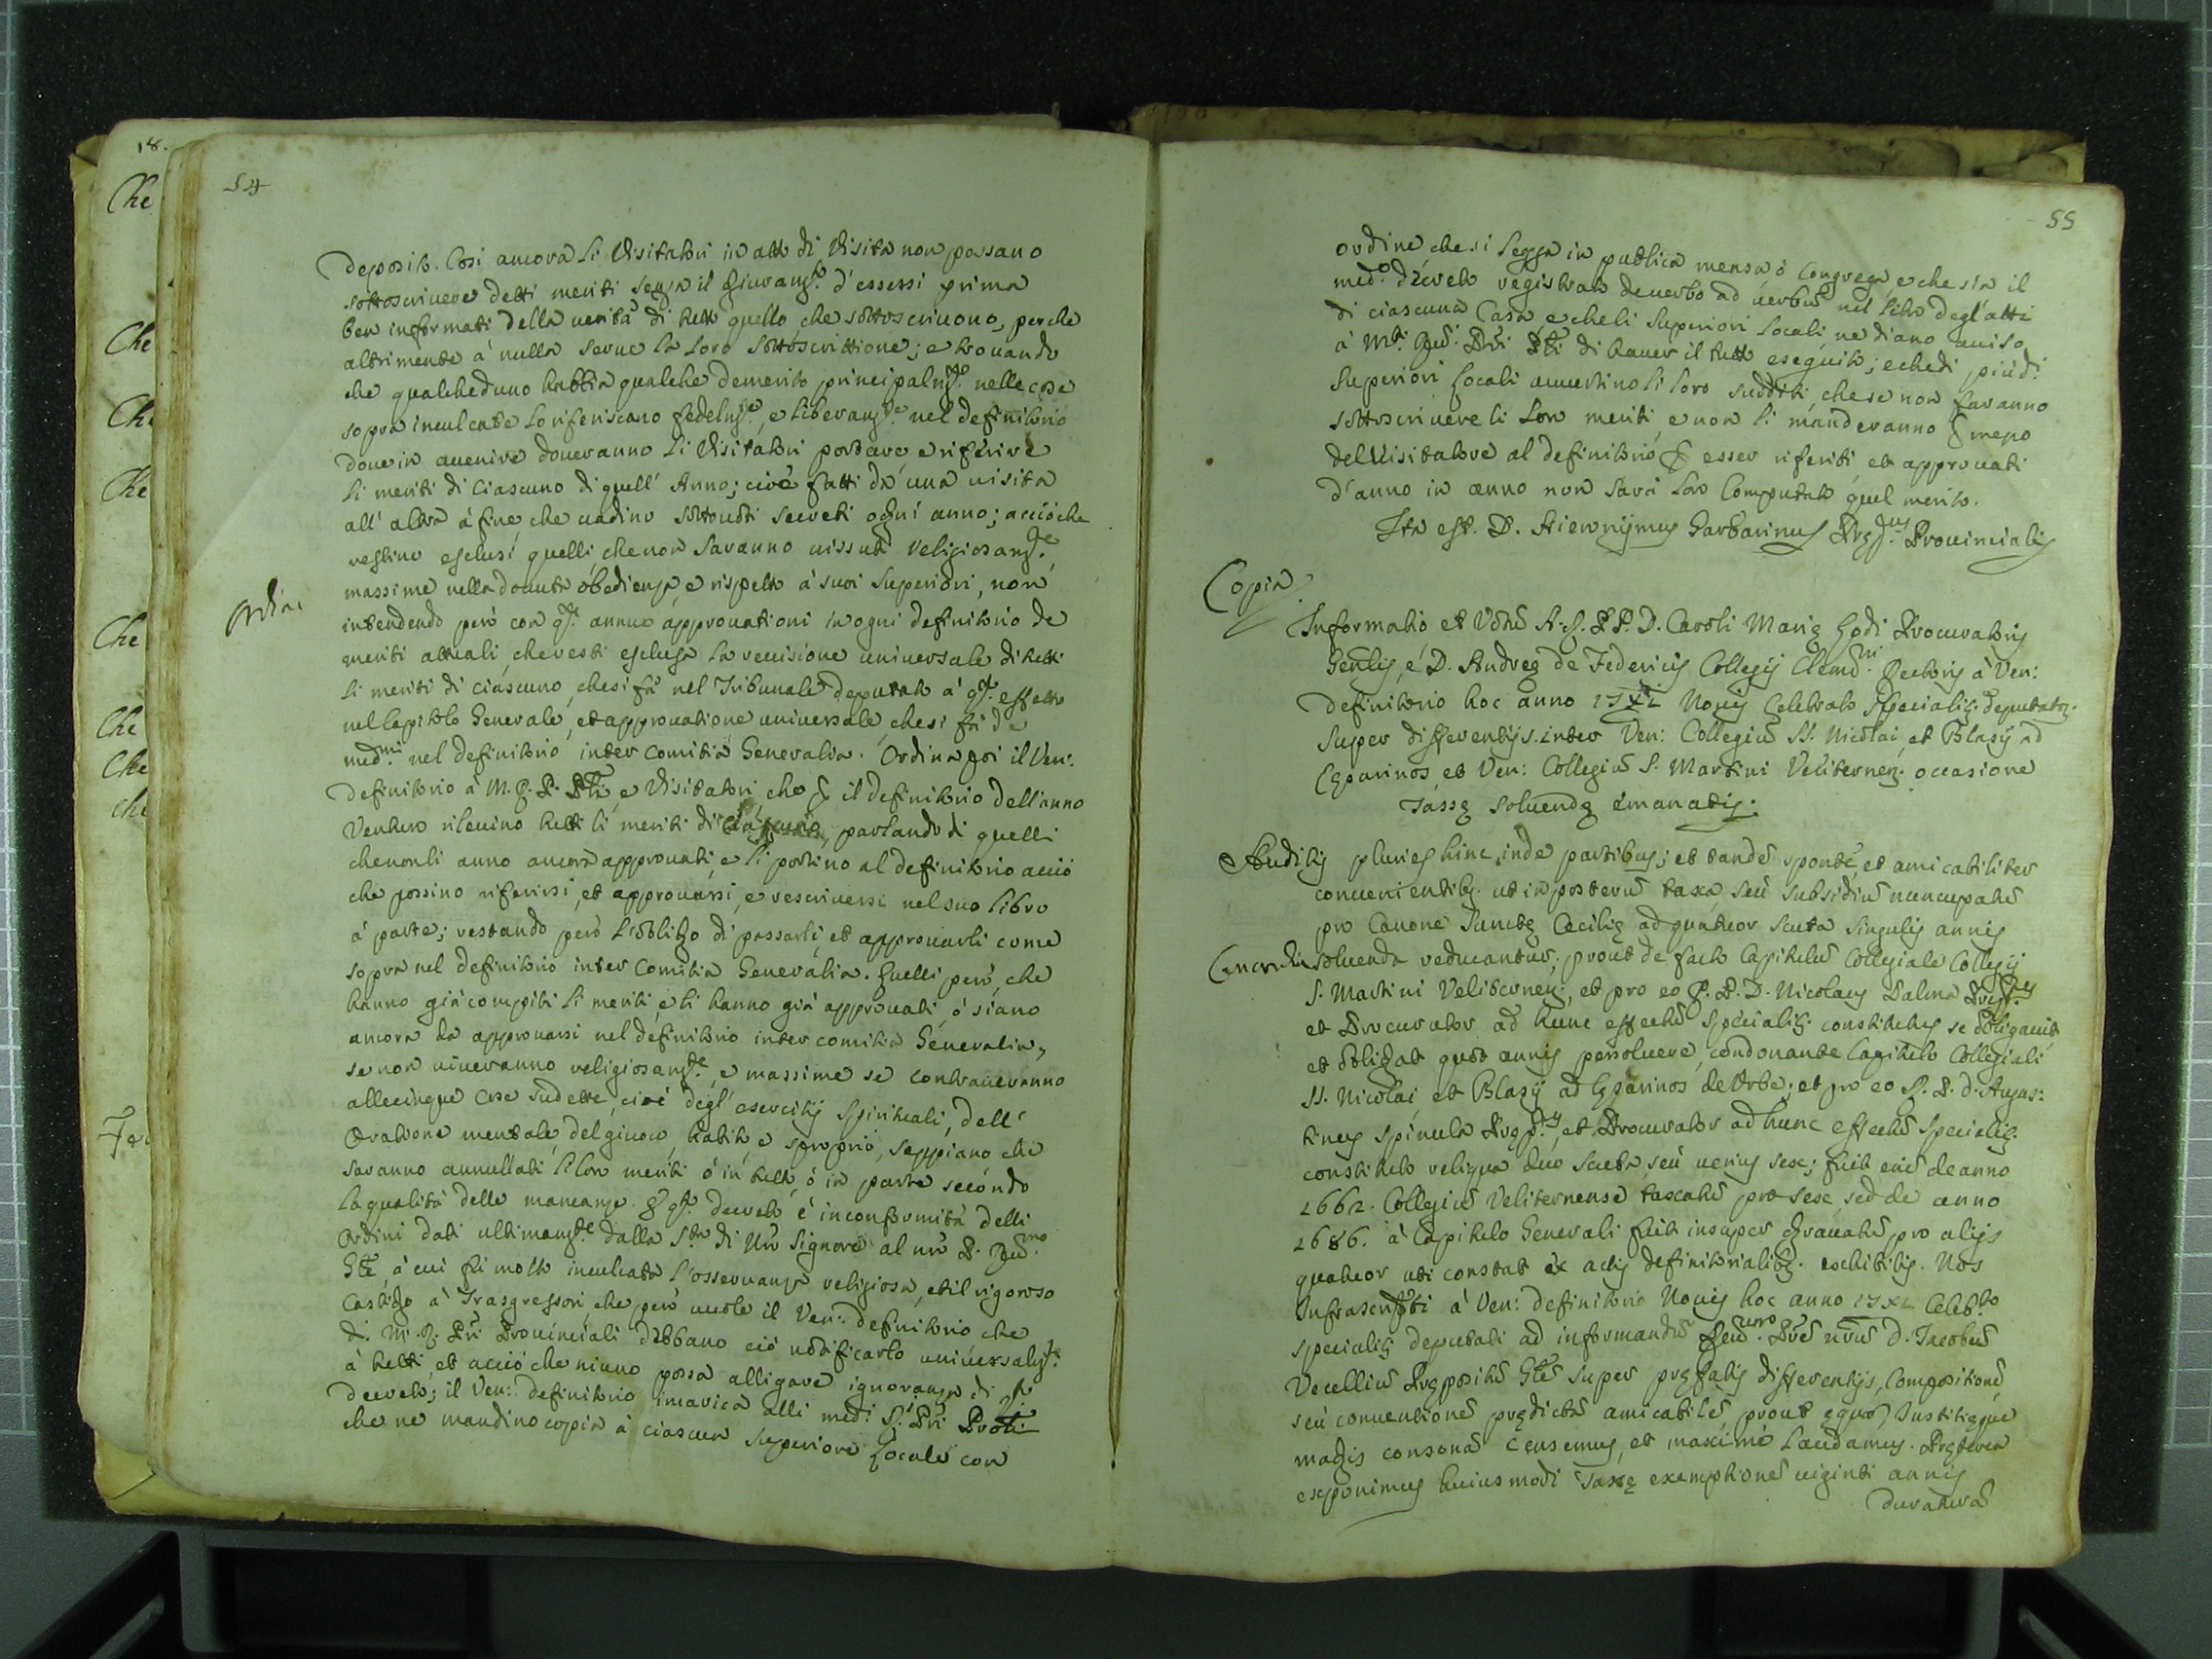 18.
Che
Che
Che
Che
Che
Che
Che
che
54
deposito. Cosi ancora li Visitatori in atto di Visita non possano
sottoscrivere detti meriti senza il giuramto. d'essersi prima
ben informati della verità di tutto quello che sottoscrivono, perche
altrimente à nulla serve la loro sottoscrittione; e trovando
che qualcheduno habbia qualche demerito principalmte. nelle cose
sopra inculcate lo riferiscano fedelmte. e liberamte. nel definitorio
dove in avenire doveranno li Visitatori portare e riferire
li meriti di ciascuno di quell' Anno; cioè fatti da una visita
all' altra à fine che vadino sotto voti secreti ogni anno; acciò che
restino esclusi quelli, che non saranno vissuti religiosamte.
massime nella dovuta obedienza, e rispetto à suoi Superiori, non
Ordini
intendendo però con qte. annue approvationi in ogni definitorio de
meriti attuali, che resti esclusa la revisione universale di tutti
li meriti di ciascuno, che si fà nel Tribunale deputato à qto. effetto
nel Capitolo Generale, et approvatione universale, che si fà de
medmi. nel definitorio inter comitia Generalia. Ordina poi il Ven:
definitorio à M. R. P. Pñli, e Visitatori, che ꝑ il definitorio dell'anno
Venturo rilevino tutti li meriti di ciascuno, parlando di quelli
che non li anno ancora approvati, e li portino al definitorio acciò
che possino riferirsi, et approvarsi, e rescriversi nel suo libro
à parte; restando però l'obbligo di passarli, et approvarli come
sopra nel definitorio inter Comitia Generalia. Quelli però, che
hanno già compiti li meriti, e li hanno già approvati, ò siano
ancora da approvarsi nel definitorio inter comitia Generalia,
se non viveranno religiosamte., e massime se contraveranno
alle cinque cose sudette, cioè degl' esercitij spirituali, dell'
Oratione mentale, del giuoco, habito, e sproprio, sappiano che
saranno annullati li lor meriti ò in tutto, ò in parte secondo
la qualità delle mancanze. E qto. decreto è in conformità delli
Ordini dati ultimamte. dalla Stà. di Nrõ Signore al nrõ P. Rmo.
Gñle, à cui fù molto inculcata l'osservanza religiosa, et il rigoroso
castigo à Trasgressori che però vuole il Ven: definitorio che
di M. R. Pri Provinciali debbano ciò notificarlo universalmte.
à tutti, et acciò che niuno possa allegare ignoranza di qto.
decreto; il Ven: definitorio incarica alli medi. R. Pri Prõli
che ne mandino copia à ciascun Superiore locale con
55
ordine che si legga in publica mensa, ò Congrega, e che sia il
medo. decreto registrato de verbo ad verbũ nel libro degl'atti
di ciascuna Casa, e che li Superiori Locali, ne diano aviso
à Mti. Rdi. Pri Pñli di haver il tutto eseguito; e che di più di
Superiori Locali avvertino li loro sudditi, che se non faranno
sottoscrivere li lor meriti, e non li manderanno ꝑ mezo
del Visitatore al definitorio ꝑ esser riferiti et approvati
d'anno in anno non sarà loro Computato quel merito.
Ita est. D. Hieronymus Garbarinus Prępus. Provincialis
Copia.
Informatio et Votũ A. R. P. P. D. Caroli Marię Lodi Procuratoris
Gẽnlis, e D. Andreę de Federicis Collegij Clemni. Rectoris à Ven:
definitorio hoc anno 17XL Novis Celebrato specialiter deputator.
super differentijs inter Ven: Collegiũ SS. Nicolai, et Blasij ad
Cęsarinos et Ven: Collegiũ S. Martini Veliternen. occasione
Taxę solvendę emanatis.
Auditis pluries hinc inde partibus; et tandẽ sponte, et amicabiliter
convenientibs. ut in posterũ taxa, seù subsidiũ nuncupatũ
pro Canone Sanctę Cecilię ad quatuor scuta singulis annis
Concordia
solvenda reducantur; prout de facto Capitulũ Collegiale Collegij
S. Martini Veliternen:, et pro eo R. P. D. Nicolaus Palma Pręptus
et Procurator ad hunc effectũ specialiter constitutus se obligavit
et obligat quot annis persolvere, condonante Capitulo Collegiali
SS. Nicolai, et Blasij ad Cęsarinos de Urbe; et pro eo R. P. D. Augus:
tinus Spinula Pręptus, et Procurator ad hunc effectũ specialiter
constituto reliqua duo scuta seù verius sex; fuit enĩ de anno
1662. Collegiũ Veliternense taxatũ pro sex, sed de anno
1686. à Capitulo Generali fuit insuper gravatũ pro alijs
quatuor uti constat ex actis definitorialibs. exhibitis. Nos
Infrascripti à Ven: definitorio Novis hoc anno 17XL Celebto
specialiter deputati ad informandũ Rmũ. Prẽ nrũ D. Iacobũ
Vecelliũ Prępositũ Gñlẽ super pręfatis differentijs, Compositionẽ
seù conventionẽ prędictã amicabilẽ, prout ęquo, Iustitięque
magis consonã censemus, et maximè laudamus. Pręterea
exponimus huiusmodi Taxę exemptionẽ viginti annis
duraturã